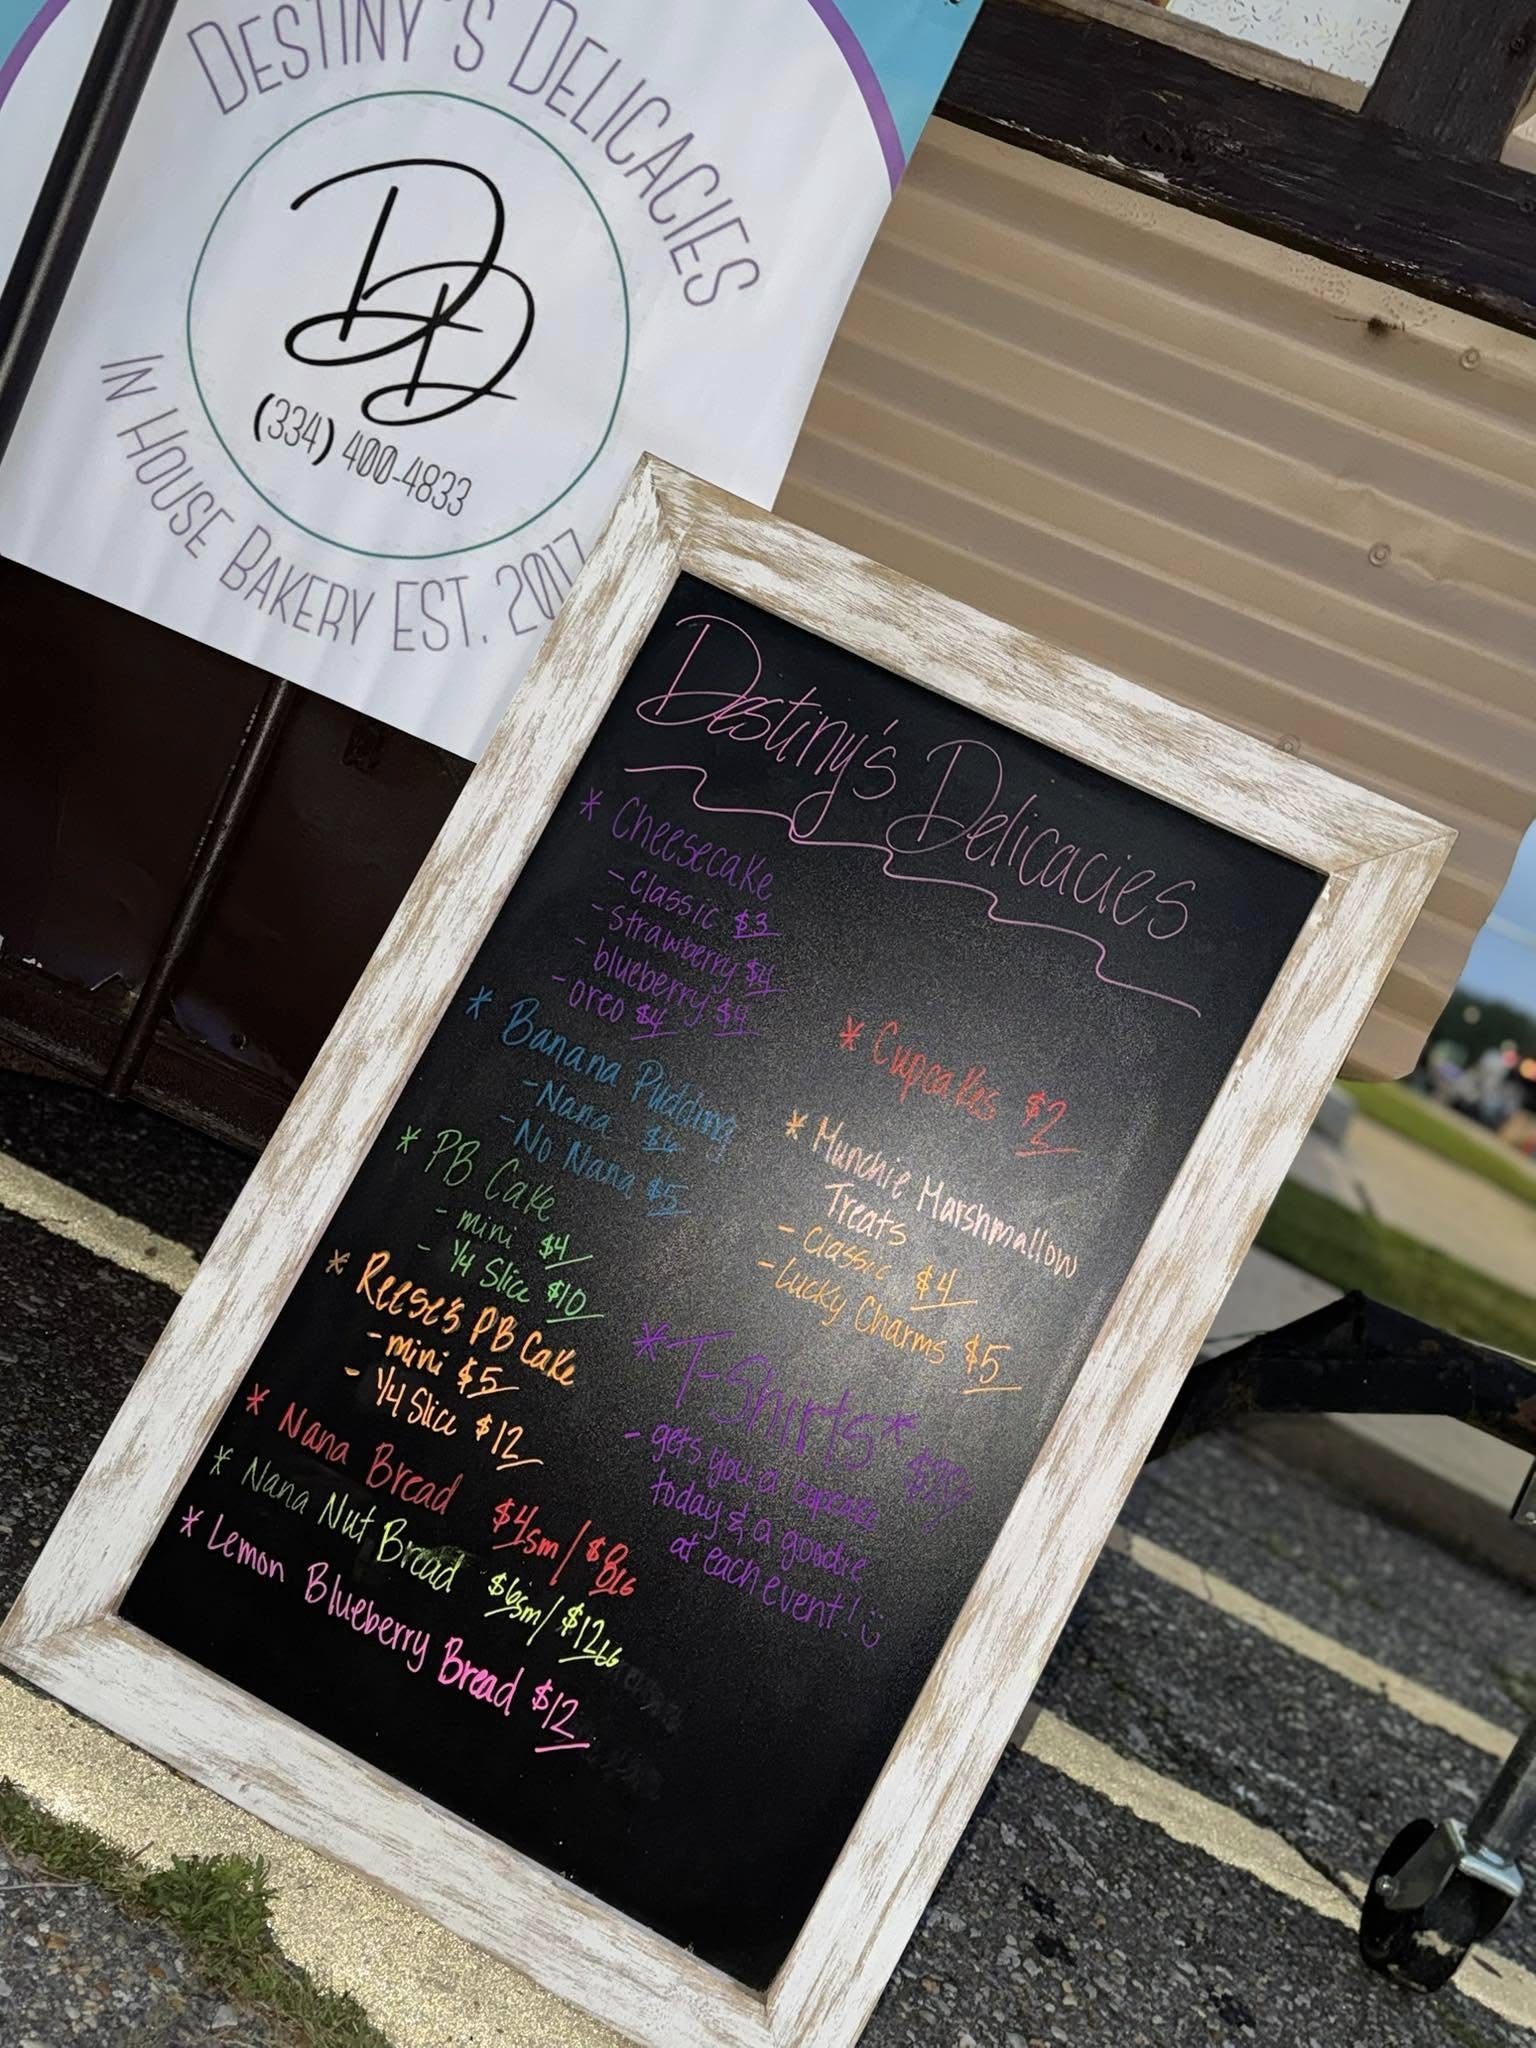 DESTINY'S DELICACIES
DD
(334) 400-4833
IN HOUSE BAKERY EST. 2017
Destiny's Delicacies
* Cheesecake
- classic $3
- strawberry $4
- blueberry $4
- oreo $4
* Banana Pudding
- Nana $6
- No Nana $5
* PB Cake
- mini $4
- 1/4 Slice $10
* Reese's PB Cake
- mini $5
- 1/4 Slice $12
* Nana Bread $4sm/$8BIG
* Nana Nut Bread $6sm/$12LG
* Lemon Blueberry Bread $12
* Cupcakes $2
* Munchie Marshmallow
Treats
- Classic $4
- Lucky Charms $5
*T-Shirts*
- gets you a cupcake
today & a goodie
at each event! :)